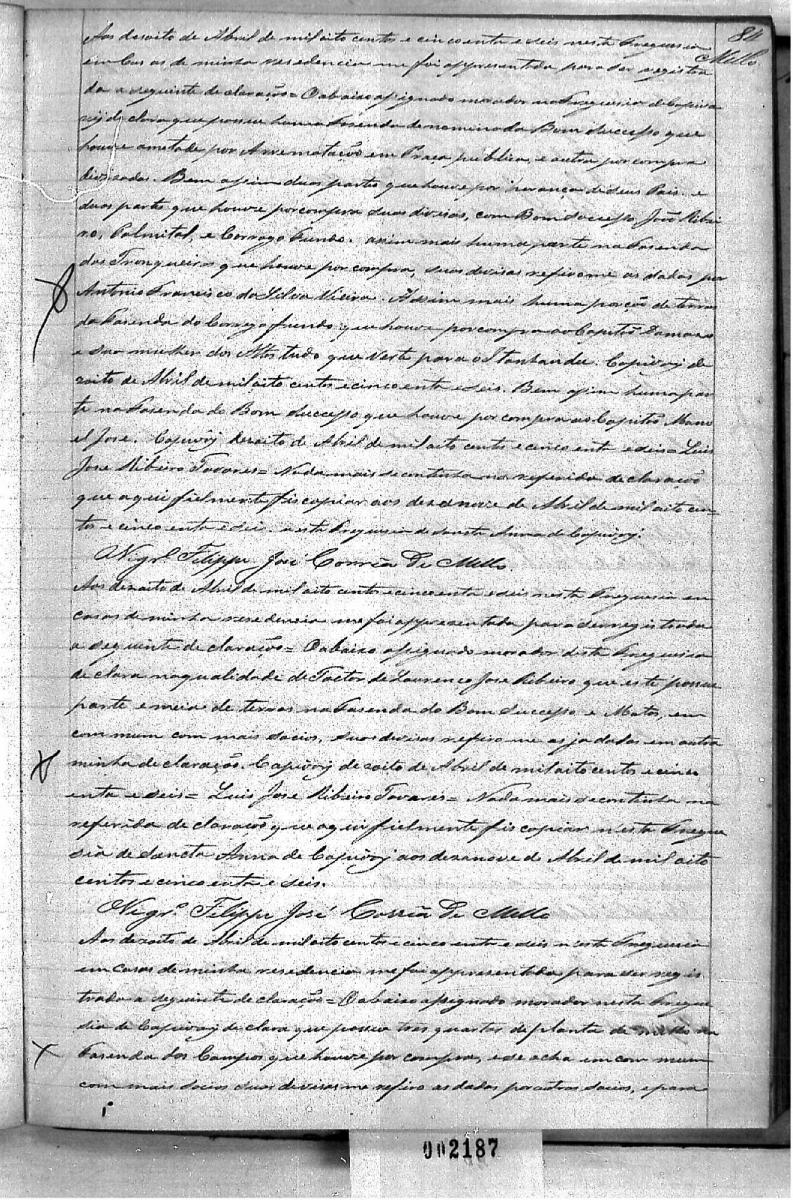 84
Mello
Aos desoito de Abril de mil oito centos e cincoenta e seis nesta Freguesia
em Casas de minha residencia me foi appresentada para ser registra
da a seguinte declaração = O abaixo assignado morador na Freguesia de Capiva
ry declara que possue huma Fasenda denominada Bom Successo que
houve ametade por Arrematação em Praça publica, e outra por compra
Bem assim duas partes que houve por herança de seus Pais, e
duas partes que houve por compra suas divisas, com Bom Successo, João Ribei
ro, Palmital, e Corrego Fundo. assim mais huma parte na Fasenda
das Tronqueiras que houve por compra, suas divisas refirome as dadas por
Antonio Francisco da Silva Vieira. Assim mais huma porção de terras
da Fasenda do Corrego fundo que houve por compra ao Capitão Damaso
e sua mulher dos Altos tudo que verte para o Capivary de
zoito de Abril de mil oito centos e cincoenta e seis. Bem assim huma par
te na Fasenda do Bom Successo que houve por compra ao Capitão Mano
el José. Capivary dezoito de Abril de mil oito centos e cincoenta e seis = Luis
José Ribeiro Tavares = Nada mais se continha na referida declaração
que aqui fielmente fis copiar aos desanove de Abril de mil oito cen
tos e cincoenta e seis nesta Freguesia de Santa Anna de Capivary.
O Vigr.º Filippe José Corrêa De Mello
Aos dezoito de Abril de mil oito centos e cincoenta e seis nesta Freguesia em
casas de minha residencia me foi appresentada para ser registrada
a seguinte declaração = O abaixo assignado morador desta Freguesia
declara na qualidade de Tutor de Lourenço José Ribeiro que este possue
parte e meia de terras na Fasenda do Bom Successo e Matos, em
commum com mais socios, suas divisas refiro me as ja dadas em outra
minha declaração. Capivary dezoito de Abril de mil oito centos e cinco
enta e seis = Luis José Ribeiro Tavares = Nada mais se continha na
referida declaração que aqui fielmente fis copiar nesta Fregue
sia de Sancta Anna de Capivary aos dezanove de Abril de mil oito
centos e cincoenta e seis.
O Vigr.º Filippe José Corrêa De Mello
Aos dezoito de Abril de mil oito centos e cincoenta e seis nesta Freguesia
em casas de minha residencia me foi appresentada para ser regis
trada a seguinte declaração = O abaixo assignado morador nesta Fregue
sia de Capivary declara que possue tres quartas de planta de milho na
Fasenda dos Campos, que houve por compra, e se acha em commum
com mais socios suas divisas me refiro as dadas por outros socios, e para
002187